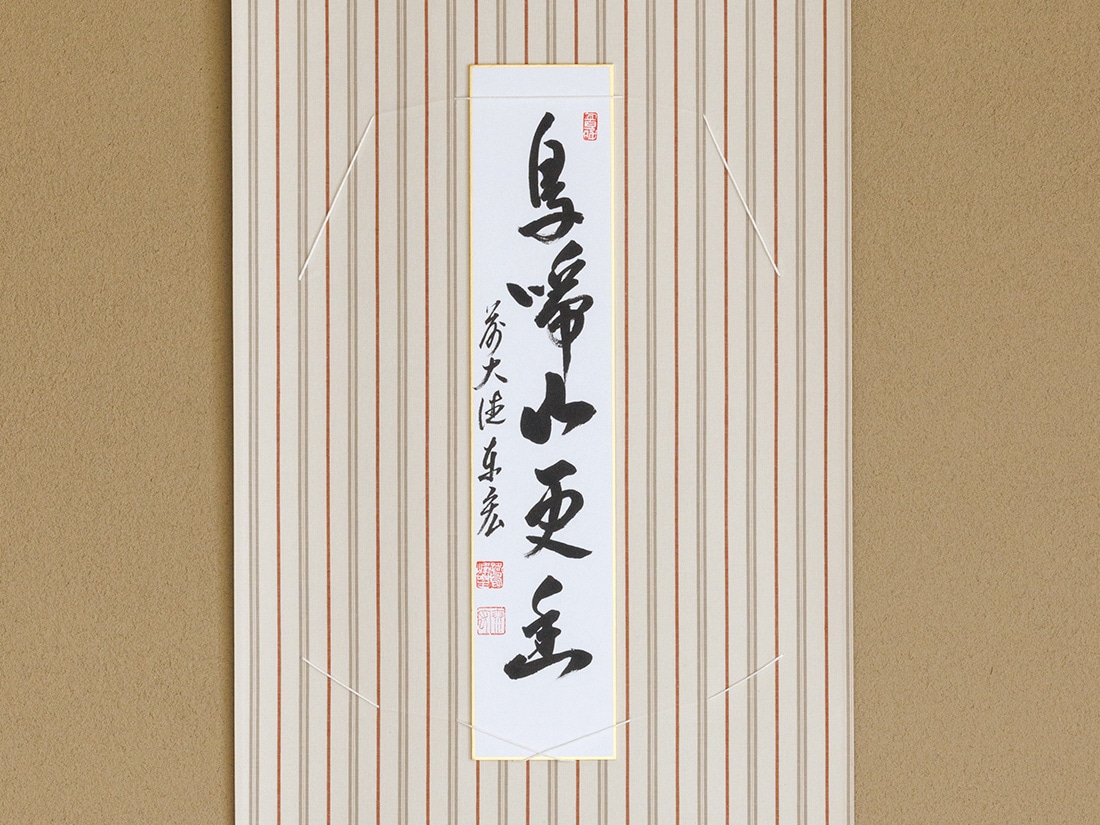 鳥啼山更幽
前大徳東宏